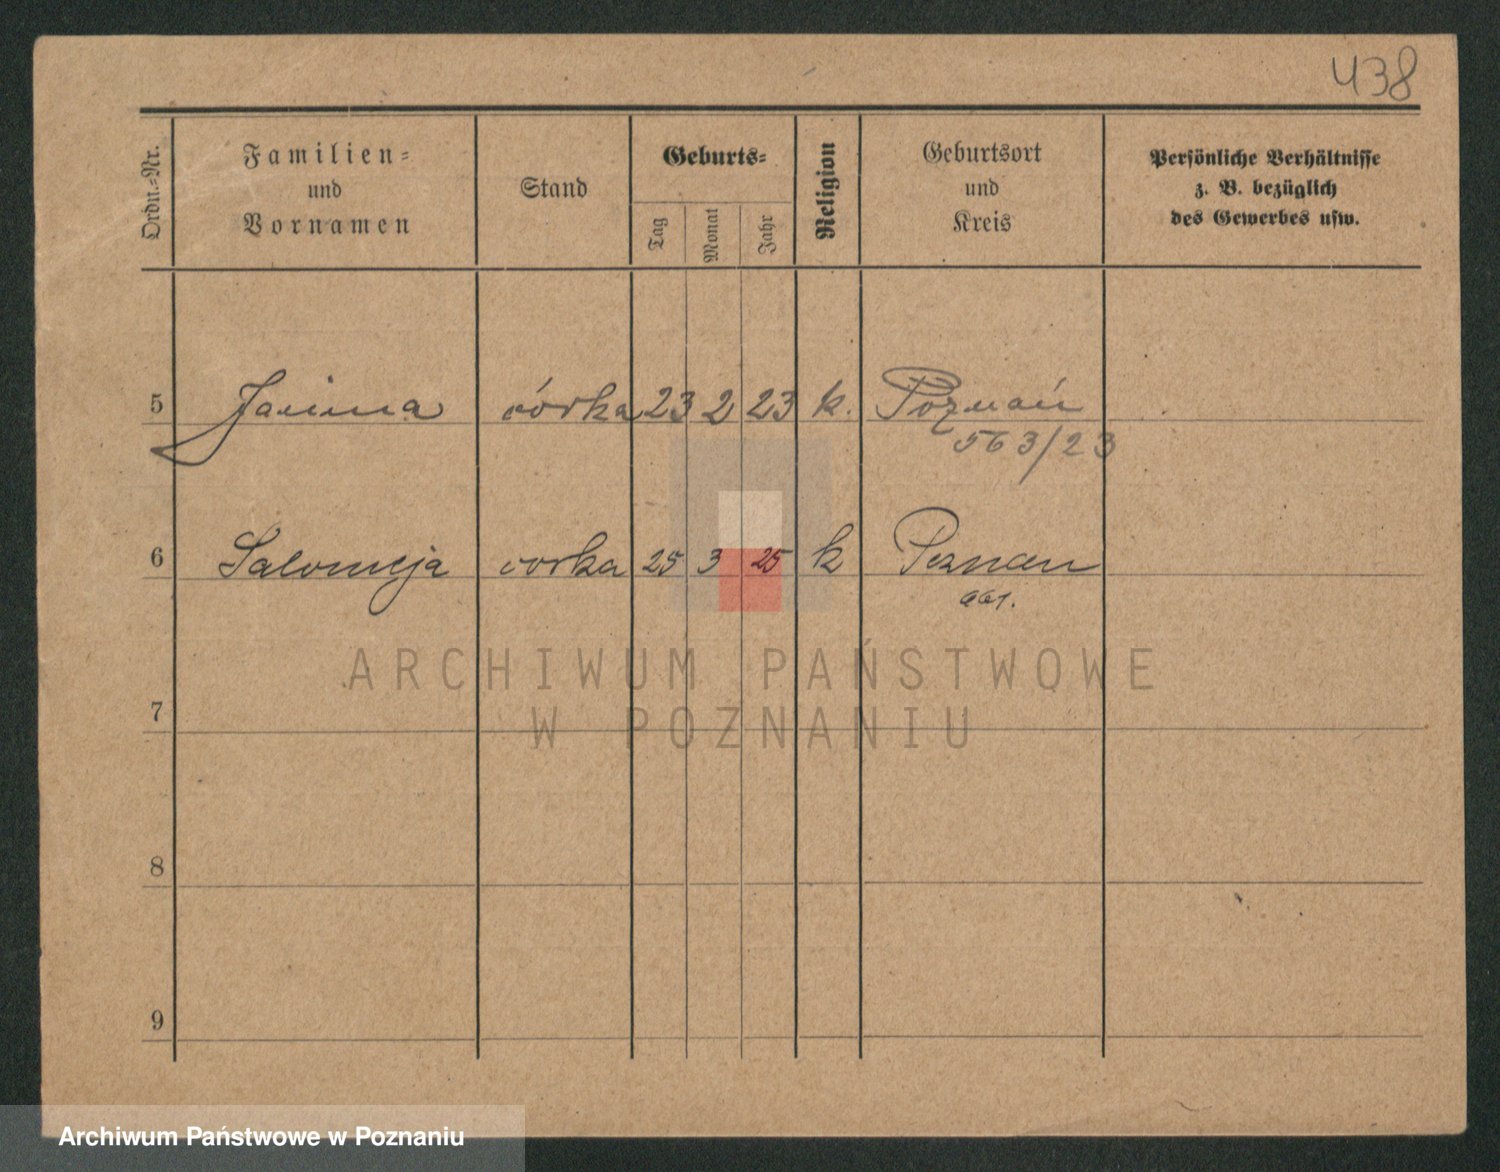 438
Ordn.-Nr.
Familien-
und
Vornamen
Stand
Geburts-
Tag
Monat
Jahr
Religion
Geburtsort
und
Kreis
Persönliche Verhältnisse
z. B. bezüglich
des Gewerbes usw.
5 Janina córka 23 2 23 k. Poznań
563/23
6 Salomeja corka 25 3 25 k Poznan
661.
ARCHIWUM PAŃSTWOWE
7
W POZNANIU
8
9
Archiwum Państwowe w Poznaniu